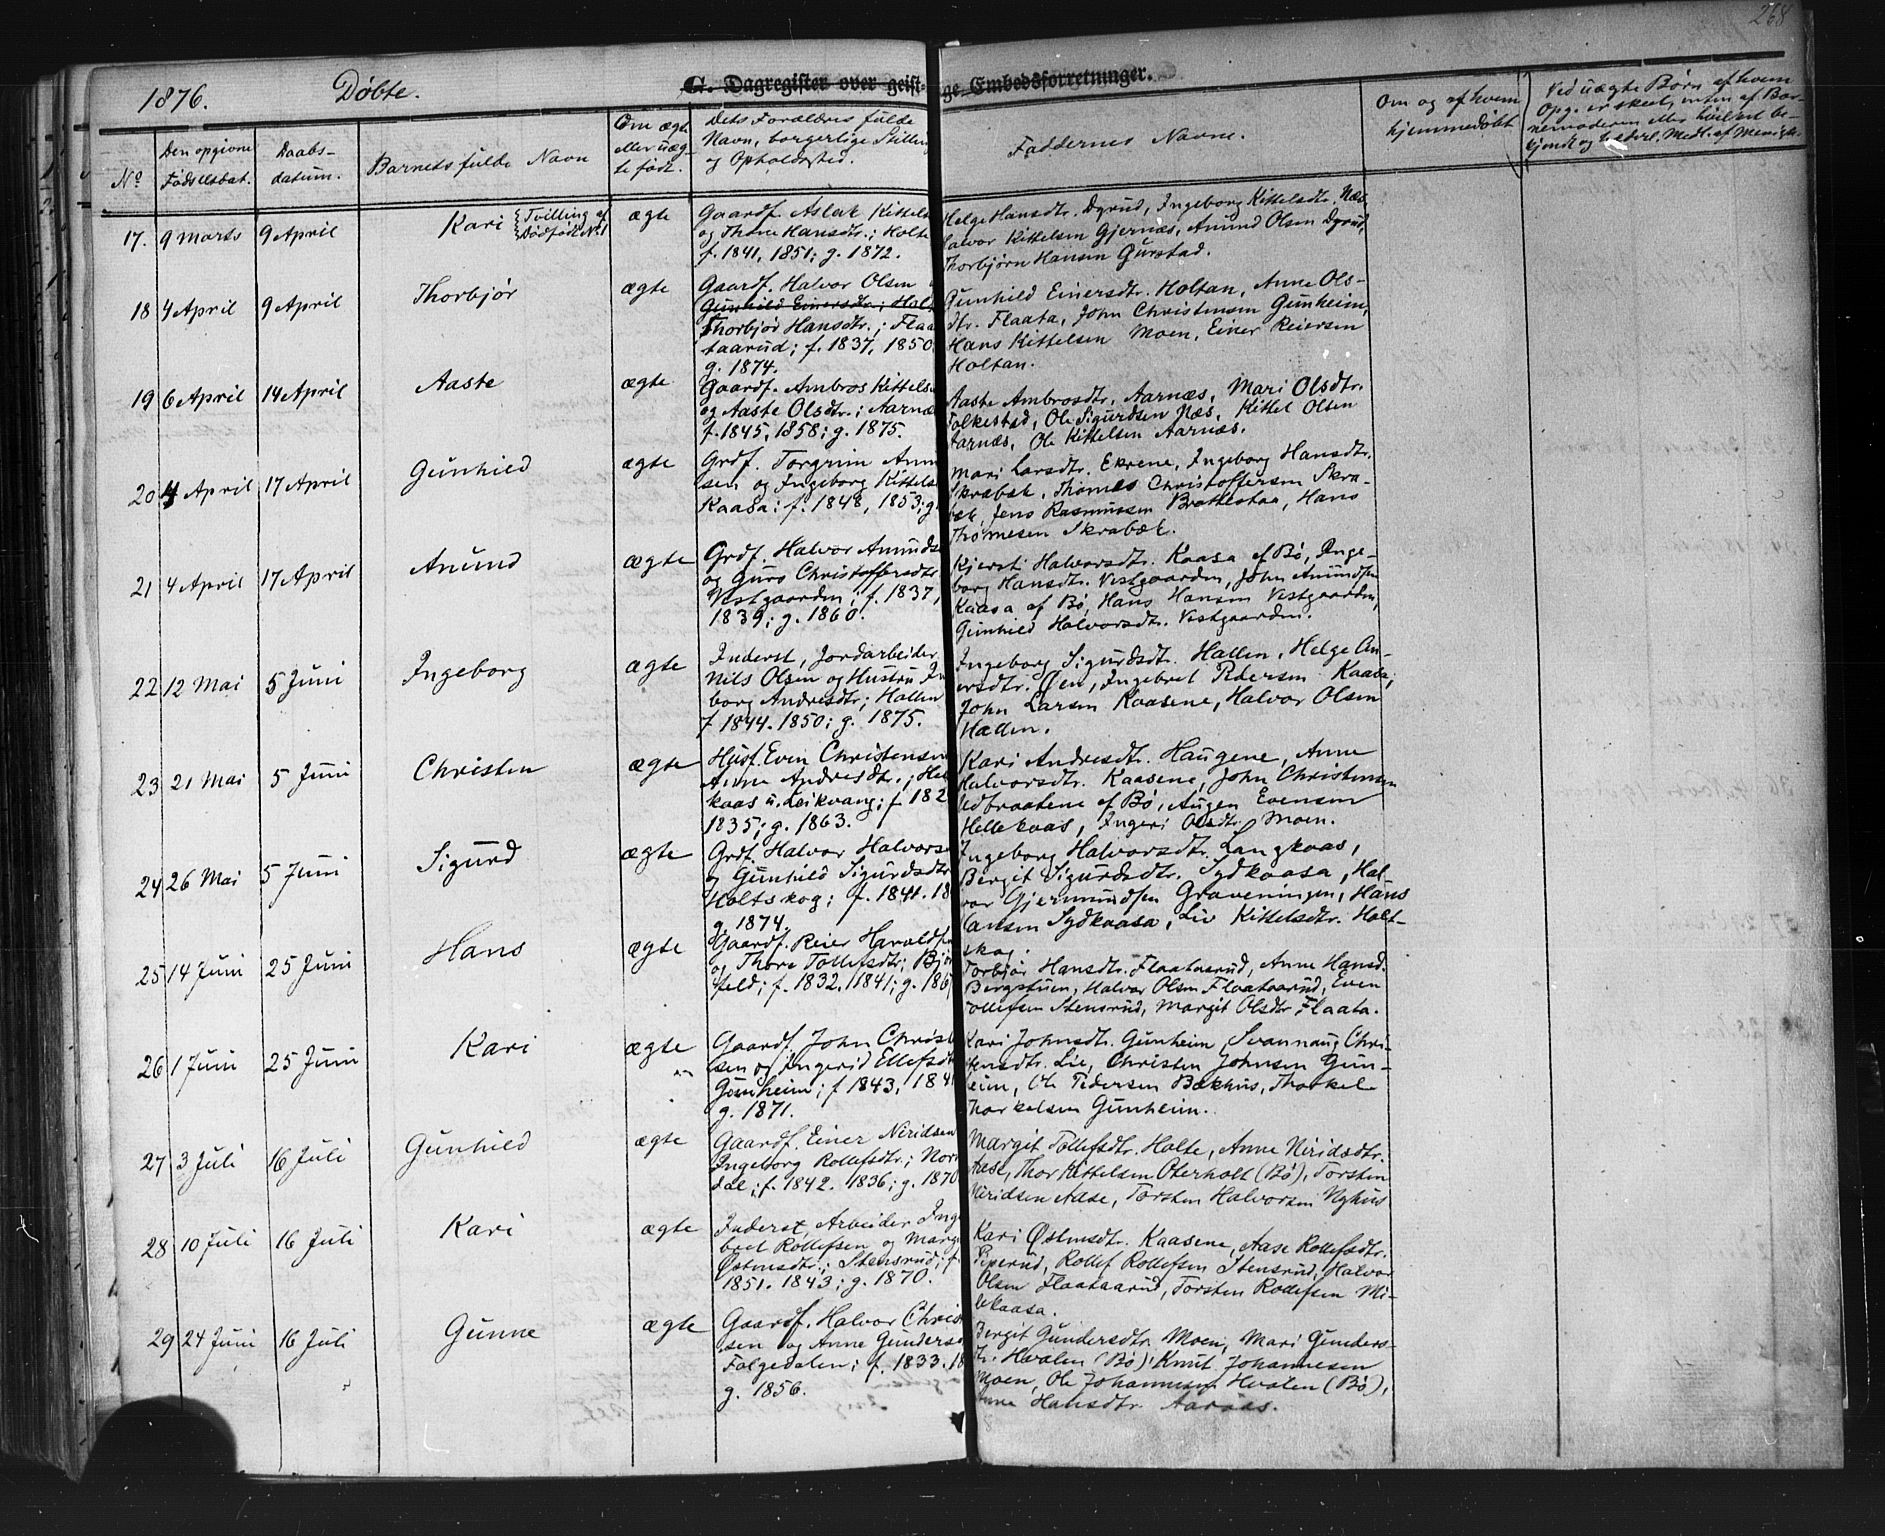 268
1876. Døbte. G. Dagregister over geist- ge Embedsforretninger.
No
Den opgivne Fødselsdat.
Daabs-
datum.
Barnets fulde Navn
Om ægte
eller uæg-
te født.
Dets Forældres fulde
Navn, borgerlige Stilling
og Opholdssted.
Faddernes Navne.
Om og af hvem
hjemmedøbt
Ved uægte Børn af hvem
Opg. er skeet, enten af Bar-
nemoderen eller hvilket be-
kjendt og Medl. af Menigh.
17. 9 Marts 9 April Kari {Tvilling af
Dødfødt No 1 ægte
Gaardf. Aslak Kittels
og Thore Hansdtr.; Holte
f. 1841, 1851; g. 1872.
Helge Hansdtr. Dyrud, Ingeborg Kittelsdtr. Næs,
Halvor Kittelsen Gjernæs, Amund Olsen Dyrud,
Thorbjørn Hansen Gurstad.
18 4 April 9 April Thorbjør ægte
Gaardf. Halvor Olsen
Gunhild Einersdtr.; Hol
Thorbjør Hansdtr.; Flaa
taarud; f. 1837, 1850
g. 1874.
Gunhild Einersdtr. Holtan, Anne Ols-
dtr. Flaata, John Christensen Gunheim,
Hans Kittelsen Moen, Einer Reiersen
Holtan.
19 6 April 14 April Aaste ægte
Gaardf. Ambros Kittels
og Aaste Olsdtr.; Aarnæ
f. 1845, 1858; g. 1875.
Aaste Ambrosdtr. Aarnæs, Mari Olsdtr.
Folkestad, Ole Sigurdsen Næs, Kittel Olsen
Aarnæs, Ole Kittelsen Aarnæs.
20 4 April 17 April Gunhild ægte
Grdf. Torgrim Amm
sen og Ingeborg Kittels
Kaasa; f. 1848, 1853; g
Mari Larsdtr. Ekrene, Ingeborg Hansdtr.
Skrabek, Thomas Christoffersen Skra-
bæk, Jens Rasmussen Brattestaa, Hans
Thomesen Skrabæk.
21 4 April 17 April Amund ægte
Grdf. Halvor Amunds
og Guro Christoffersdtr
Vestgaarden; f. 1837,
1839; g. 1860.
Kjersti Halvorsdtr. Kaasa af Bø, Inge-
borg Hansdtr. Vestgaarden, John Amundsen
Kaasa af Bø, Hans Hansen Vestgaarden,
Gunhild Halvorsdtr. Vestgaarden.
22 12 Mai 5 Juni Ingeborg ægte
Inderst, Jordarbeider
Nils Olsen og Hustru In
borg Andresdtr; Hallen
f 1844. 1850; g. 1875.
Ingeborg Sigurdsdtr. Hallen, Helge An-
ersdtr. Øen, Ingebret Pedersen Kaasa,
John Larsen Kaasene, Halvor Olsen
Hallen.
23 21 Mai 5 Juni Christen ægte
Husf. Even Christensen
Anne Andresdtr.; Hel
kaas u. Leikvang; f. 182
1835; g. 1863.
Kari Andresdtr. Haugene, Anne
Halvorsdtr. Kaasene, John Christensen
Udbraatene af Bø, Augen Evensen
Hellekaas, Ingeri Olsdtr. Moen.
24 26 Mai 5 Juni Sigurd ægte
Grdf. Halvor Halvors
og Gunhild Sigurdsdtr
Holtskog; f. 1841. 18
g. 1874.
Ingeborg Halvorsdtr. Langkaas,
Bergit Sigurdsdtr. Sydkaasa, Hal-
vor Gjermundsen Graveningen, Hans
Hansen Sydkaasa, Liv Kittelsdtr. Holt-
skog.
25 14 Juni 25 Juni Hans ægte
Gaardf. Reier Haraldsen
og Thore Tollefsdtr; Bjør
feld; f. 1832, 1841; g. 186
Torbjør Hansdtr. Flaataarud, Anne Hansd.
Bergstuen, Halvor Olsen Flaataarud, Even
Tollefsen Stensrud, Margit Olsdtr Flaata.
26 1 Juni 25 Juni Kari ægte
Gaardf. John Christ
sen og Ingerid Ellefsdt
Gunheim; f 1843, 184
g. 1871.
Kari Johnsdtr. Gunheim, Svannaug Chri-
stensdtr. Lie, Christen Johnsen Gun-
heim, Ole Pedersen Bækhus, Thorkel
Thorkelsen Gunheim.
27 3 Juli 16 Juli Gunhild ægte
Gaardf. Einer Niridsen
Ingeborg Rollefsdtr.; Nor
dal; f. 1842. 1836; g. 1870
Margit Tollefsdtr. Holte, Anne Niridsdtr.
Aase, Thor Kittelsen Oterholt (Bø), Torsten
Niridsen Aase, Torsten Halvorsen Nyhus
28 10 Juli 16 Juli Kari ægte
Inderst, Arbeider Inge
bret Rollefsen og Marg
Østensdtr.; Stensrud; f.
1851. 1843; g. 1870.
Kari Østensdtr. Kaasene, Aase Rollefsdtr.
Piperud, Rollef Rollefsen Stensrud, Halvor
Olsen Flaataarud, Torsten Rollefsen Mi-
lekaasa.
29 24 Juni 16 Juli Gunne ægte
Gaardf. Halvor Chris
sen og Anne Gunders
Folgedalen; f. 1833. 18
g. 1856.
Bergit Gundersdtr. Moen, Mari Gunders-
dtr. Hvalen (Bø), Knut Johannesen
Moen, Ole Johannesen Hvalen (Bø),
Anne Hansdtr. Aaraas.